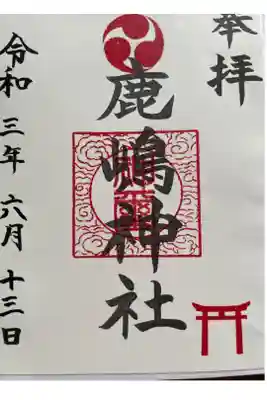 奉拝
鹿嶋神社
令和三年六月十三日